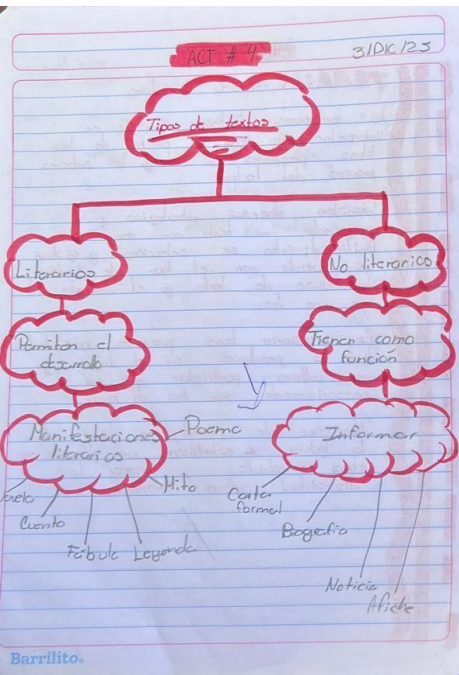 ACT # 4
3/DIC/25
Tipos de textos
Literarios
No literarios
Permiten el
desarrollo
Tienen como
función
Manifestaciones
literarias
Poema
Mito
Leyenda
Fábula
Cuento
Informar
Carta
formal
Biografía
Noticia
Afiche
Barrilito